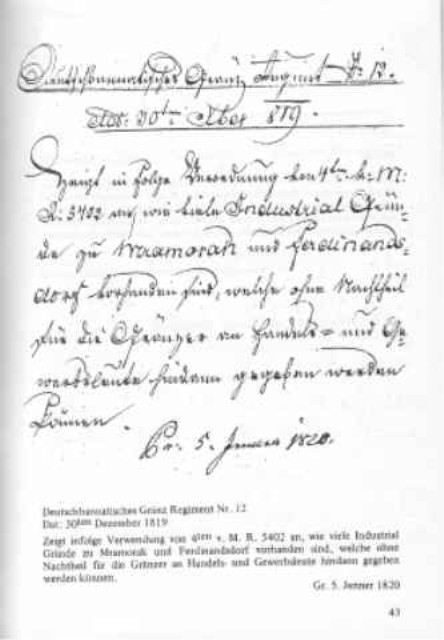 Deutschbannatisches Gränz Regiment Nr. 12.
Dat: 30ten Xber 819.
Zeigt in Folge Verordnung von 4ten h: M:
R: 5402 an, wie viele Industrial Grün-
de zu Mramorak und Ferdinands-
dorf vorhanden sind, welche ohne Nachtheil
für die Gränzer an Handels- und Ge-
werbsleute hindann gegeben werden
können.
Pr. 5. Jenner 1820.
Deutschbannatisches Gränz Regiment Nr. 12
Dat: 30ten Dezember 1819
Zeigt infolge Verwendung von 4ten v. M. R. 5402 an, wie viele Industrial
Gründe zu Mramorak und Ferdinandsdorf vorhanden sind, welche ohne
Nachtheil für die Gränzer an Handels- und Gewerbsleute hindann gegeben
werden können.
Gr. 5. Jenner 1820
43